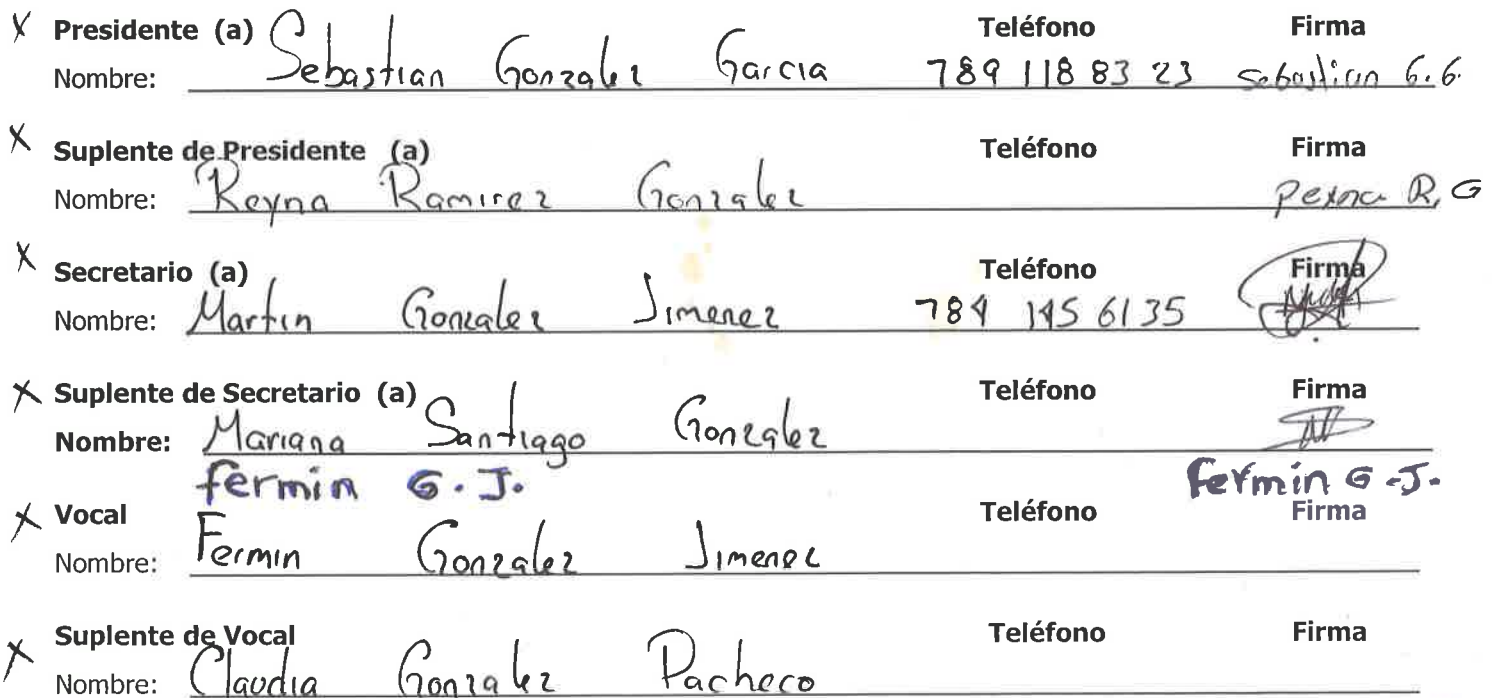 X Presidente (a) Teléfono Firma
Nombre: Sebastian Gonzalez Garcia 789 118 83 23 Sebastian G.G.
X Suplente de Presidente (a) Teléfono Firma
Nombre: Reyna Ramirez Gonzalez Reyna R, G
X Secretario (a) Teléfono Firma
Nombre: Martin Gonzalez Jimenez 789 145 6135
X Suplente de Secretario (a) Teléfono Firma
Nombre: Mariana Santiago Gonzalez
fermin G. J. fermin G.J.
X Vocal Teléfono Firma
Nombre: Fermin Gonzalez Jimenez
X Suplente de Vocal Teléfono Firma
Nombre: Claudia Gonzalez Pacheco